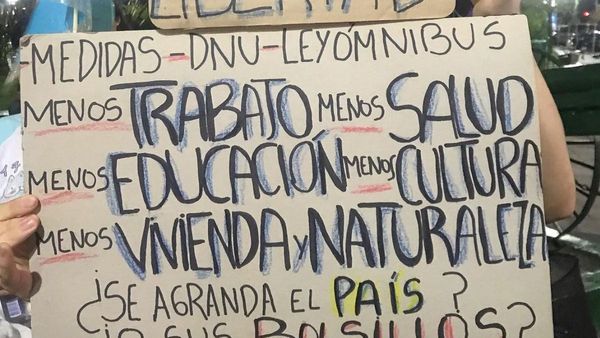 LIBERTAD
MEDIDAS-DNU-LEY ÓMNIBUS
MENOS TRABAJO MENOS SALUD
MENOS EDUCACIÓN MENOS CULTURA
MENOS VIVIENDA Y NATURALEZA
¿SE AGRANDA EL PAÍS?
¿O SUS BOLSILLOS?